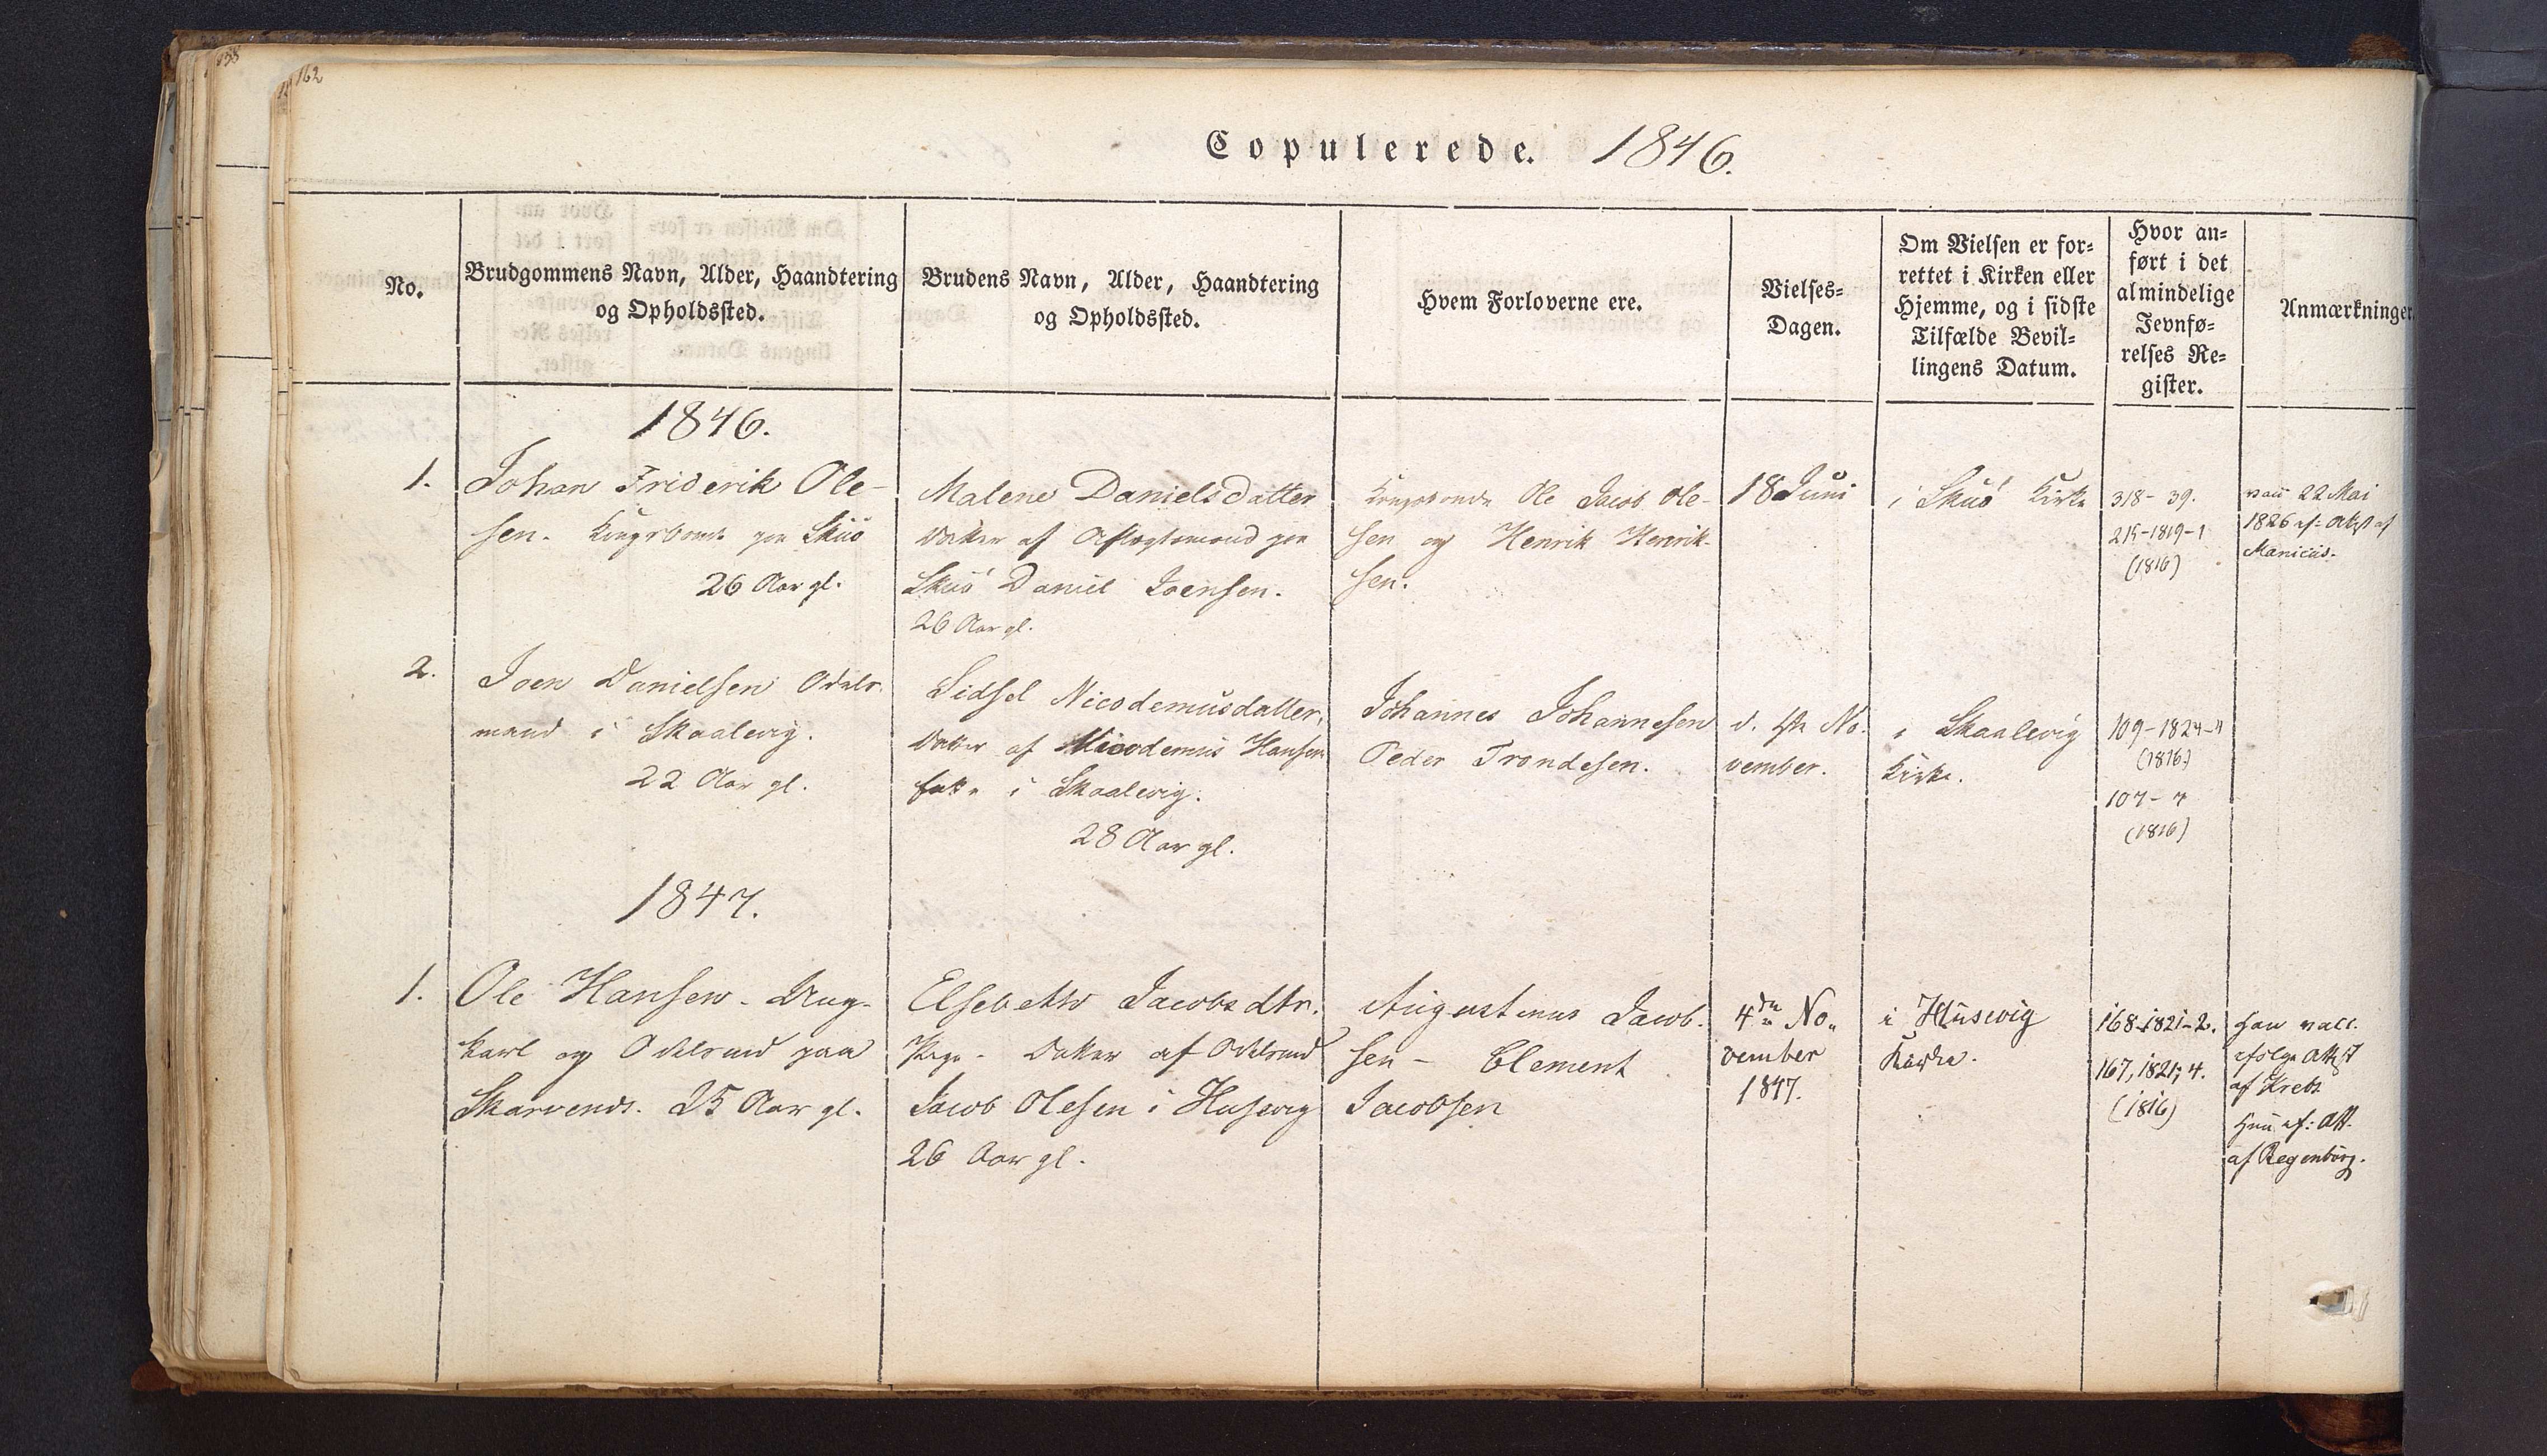 162
Copulerede. 1846.
No.
Brudgommens Navn, Alder, Haandtering
og Opholdssted.
Brudens Navn, Alder, Haandtering
og Opholdssted.
Hvem Forloverne ere.
Vielses-
Dagen.
Om Vielsen er for-
rettet i Kirken eller
Hjemme, og i sidste
Tilfælde Bevil-
lingens Datum.
Hvor an-
ført i det
almindelige
Jevnfø-
relses Re-
gister.
Anmærkninger
1846.
1.
Johan Friderik Ole-
sen. Kongsbonde paa Skuö
26 Aar gl.
Malene Danielsdatter
Datter af Aftægtsmand paa
Skuö Daniel Joensen.
26 Aar gl.
Kongsbonde Ole Jacob Ole-
sen og Henrik Henrik-
sen.
18 Juni
i Skuö Kirke
318-39.
215-1819-1
(1816)
vacc 22 Mai
1826 ef: Attst af
Manicus.
2.
Joen Danielsen Odels-
mand i Skaalevig.
22 Aar gl.
Sidsel Nicodemusdatter,
Datter af Nicodemus Hansen
i Skaalevig.
28 Aar gl.
Johannes Johannesen
Peder Trondesen.
d. No-
vember.
i Skaalevig
Kirke.
109-1824-4
(1816)
107-4
(1816)
1847.
1.
Ole Hansen. Ung-
karl og Odelsmd paa
Skarvenes. 25 Aar gl.
Elsebeth Jacobsdtr.
Pige - Datter af Odelsmd
Jacob Olesen i Husevig
26 Aar gl.
Augustinus Jacob-
sen - Clement
Jacobsen
4de No-
vember
1847.
i Husevig
Kirke.
168-1821-2.
167, 1821, 4.
(1816)
Han vacc.
efølge Attst
af Krebs
Hun ef: Att.
af Regenburg.